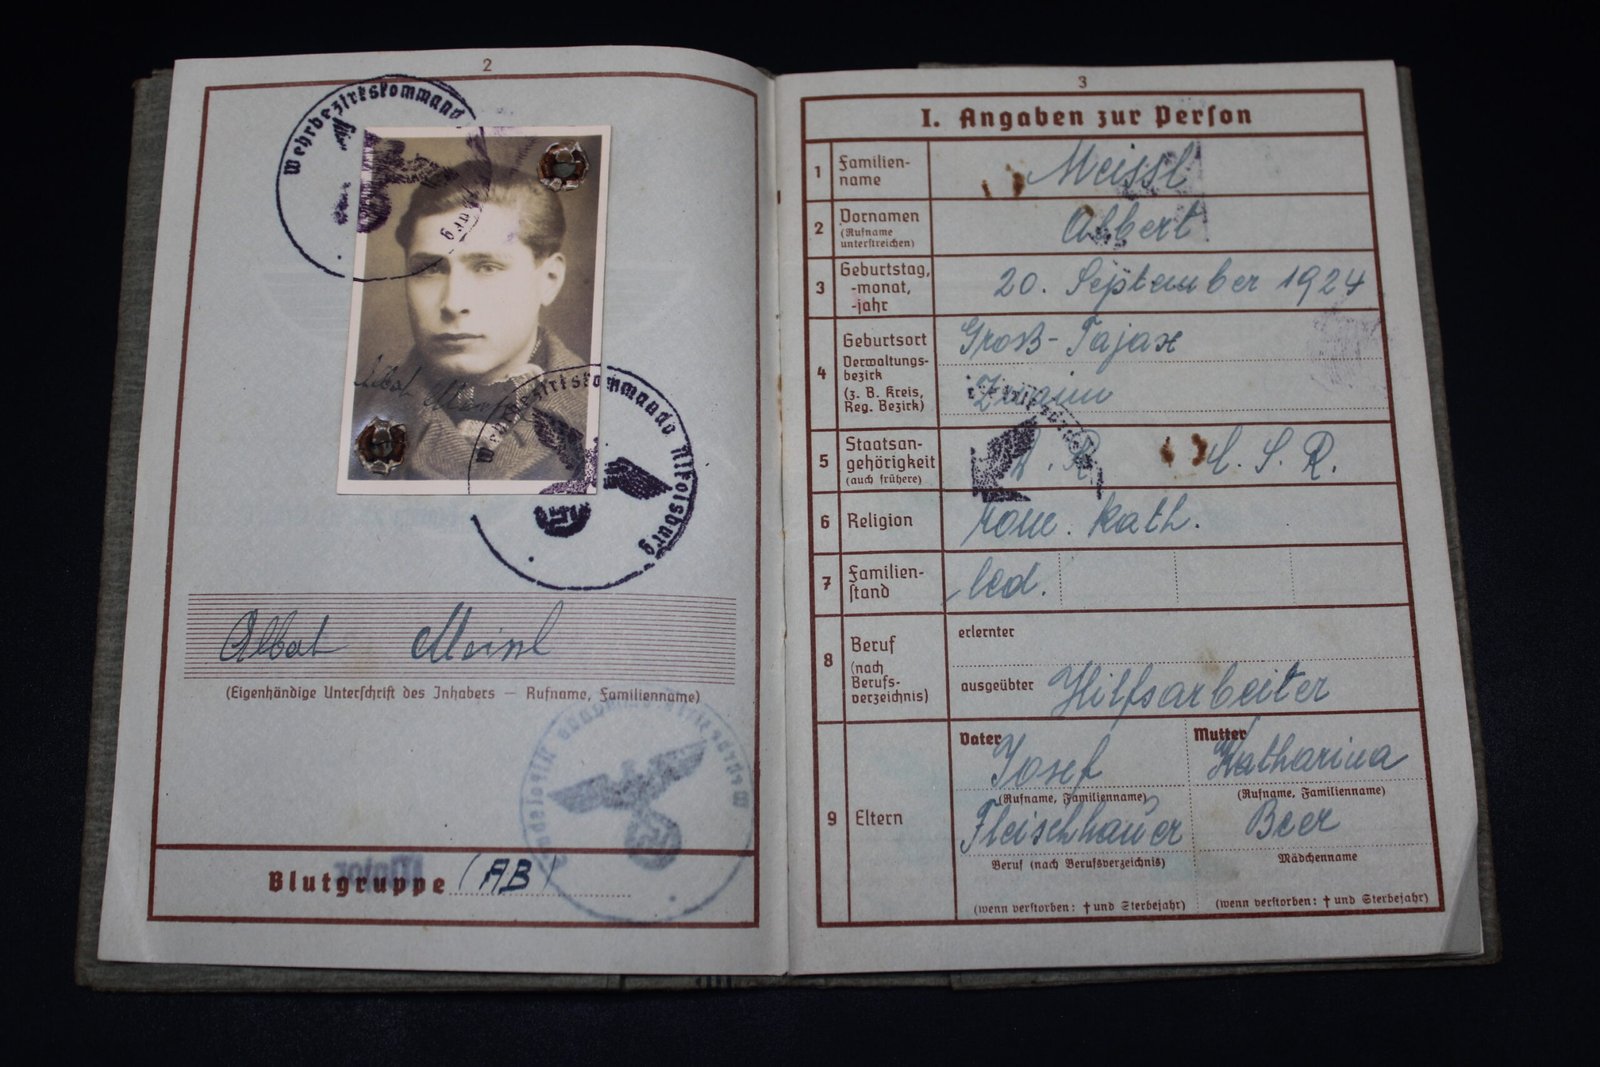 2
Wehrbezirkskommando
burg
Wehrbezirkskommando Nikolsburg
Albert Meissl
(Eigenhändige Unterschrift des Inhabers — Rufname, Familienname)
Wehrbezirkskommando Nikolsburg
Blutgruppe (AB)
3
I. Angaben zur Person
1 Familien-
name
Meissl
2 Vornamen
(Rufname
unterstreichen)
Albert
3 Geburtstag,
-monat,
-jahr
20. September 1924
4 Geburtsort
Verwaltungs-
bezirk
(z. B. Kreis,
Reg. Bezirk)
Groß-Tajax
Znaim
5 Staatsan-
gehörigkeit
(auch frühere)
D. R. Č. S. R.
6 Religion
röm. kath.
7 Familien-
stand
led.
8 Beruf
(nach
Berufs-
verzeichnis)
erlernter
ausgeübter Hilfsarbeiter
9 Eltern
Vater
Josef
(Rufname, Familienname)
Fleischhauer
Beruf (nach Berufsverzeichnis)
(wenn verstorben: † und Sterbejahr)
Mutter
Katharina
(Rufname, Familienname)
Beer
Mädchenname
(wenn verstorben: † und Sterbejahr)